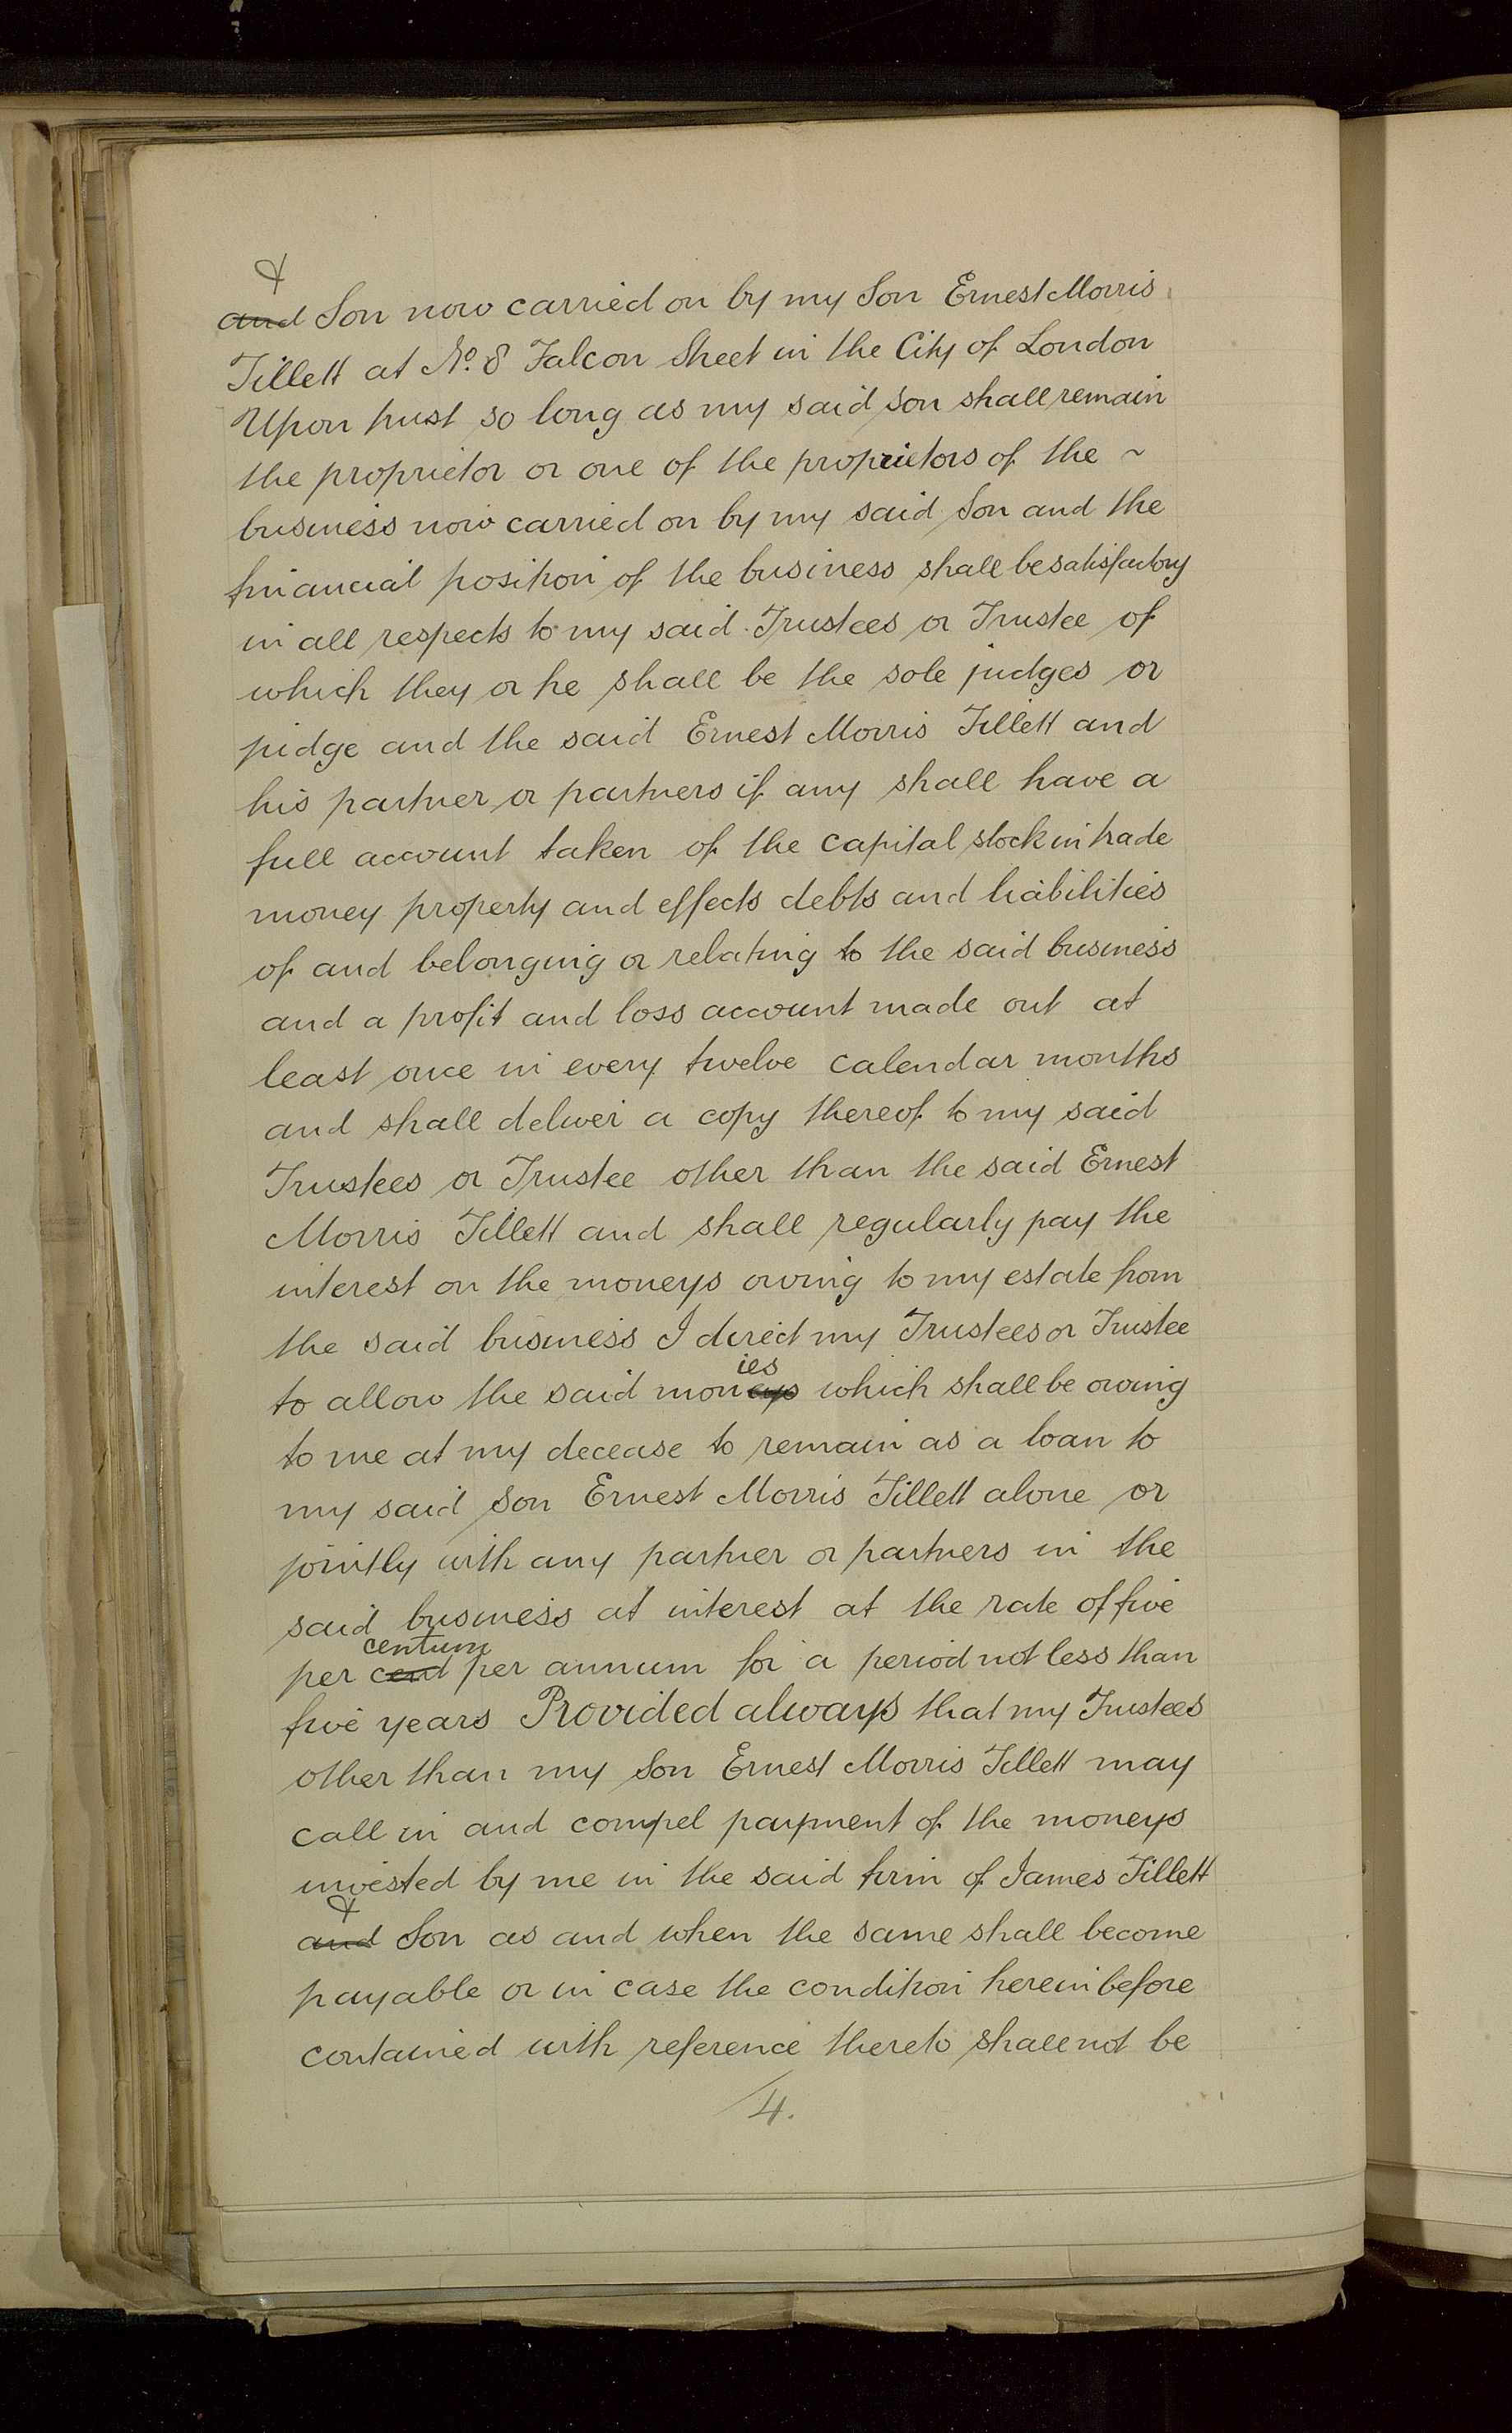 &
and Son now carried on by my Son Ernest Morris
Tillett at No. 8 Falcon Street in the City of London
Upon trust so long as my said son shall remain
the proprietor or one of the proprietors of the ~
business now carried on by my said Son and the
financial position of the business shall be satisfactory
in all respects to my said Trustees or Trustee of
which they or he shall be the sole judges or
judge and the said Ernest Morris Tillett and
his partner or partners if any shall have a
full account taken of the capital stock in trade
money property and effects debts and liabilities
of and belonging or relating to the said business
and a profit and loss account made out at
least once in every twelve calendar months
and shall deliver a copy thereof to my said
Trustees or Trustee other than the said Ernest
Morris Tillett and shall regularly pay the
interest on the moneys owing to my estate from
the said business I direct my Trustees or Trustee
ies
to allow the said moneys which shall be owing
to me at my decease to remain as a loan to
my said son Ernest Morris Tillett alone or
jointly with any partner or partners in the
said business at interest at the rate of five
centum
per cent per annum for a period not less than
five years Provided always that my Trustees
other than my Son Ernest Morris Tillett may
call in and compel payment of the moneys
invested by me in the said firm of James Tillett
&
and Son as and when the same shall become
payable or in case the condition hereinbefore
contained with reference thereto shall not be
4.